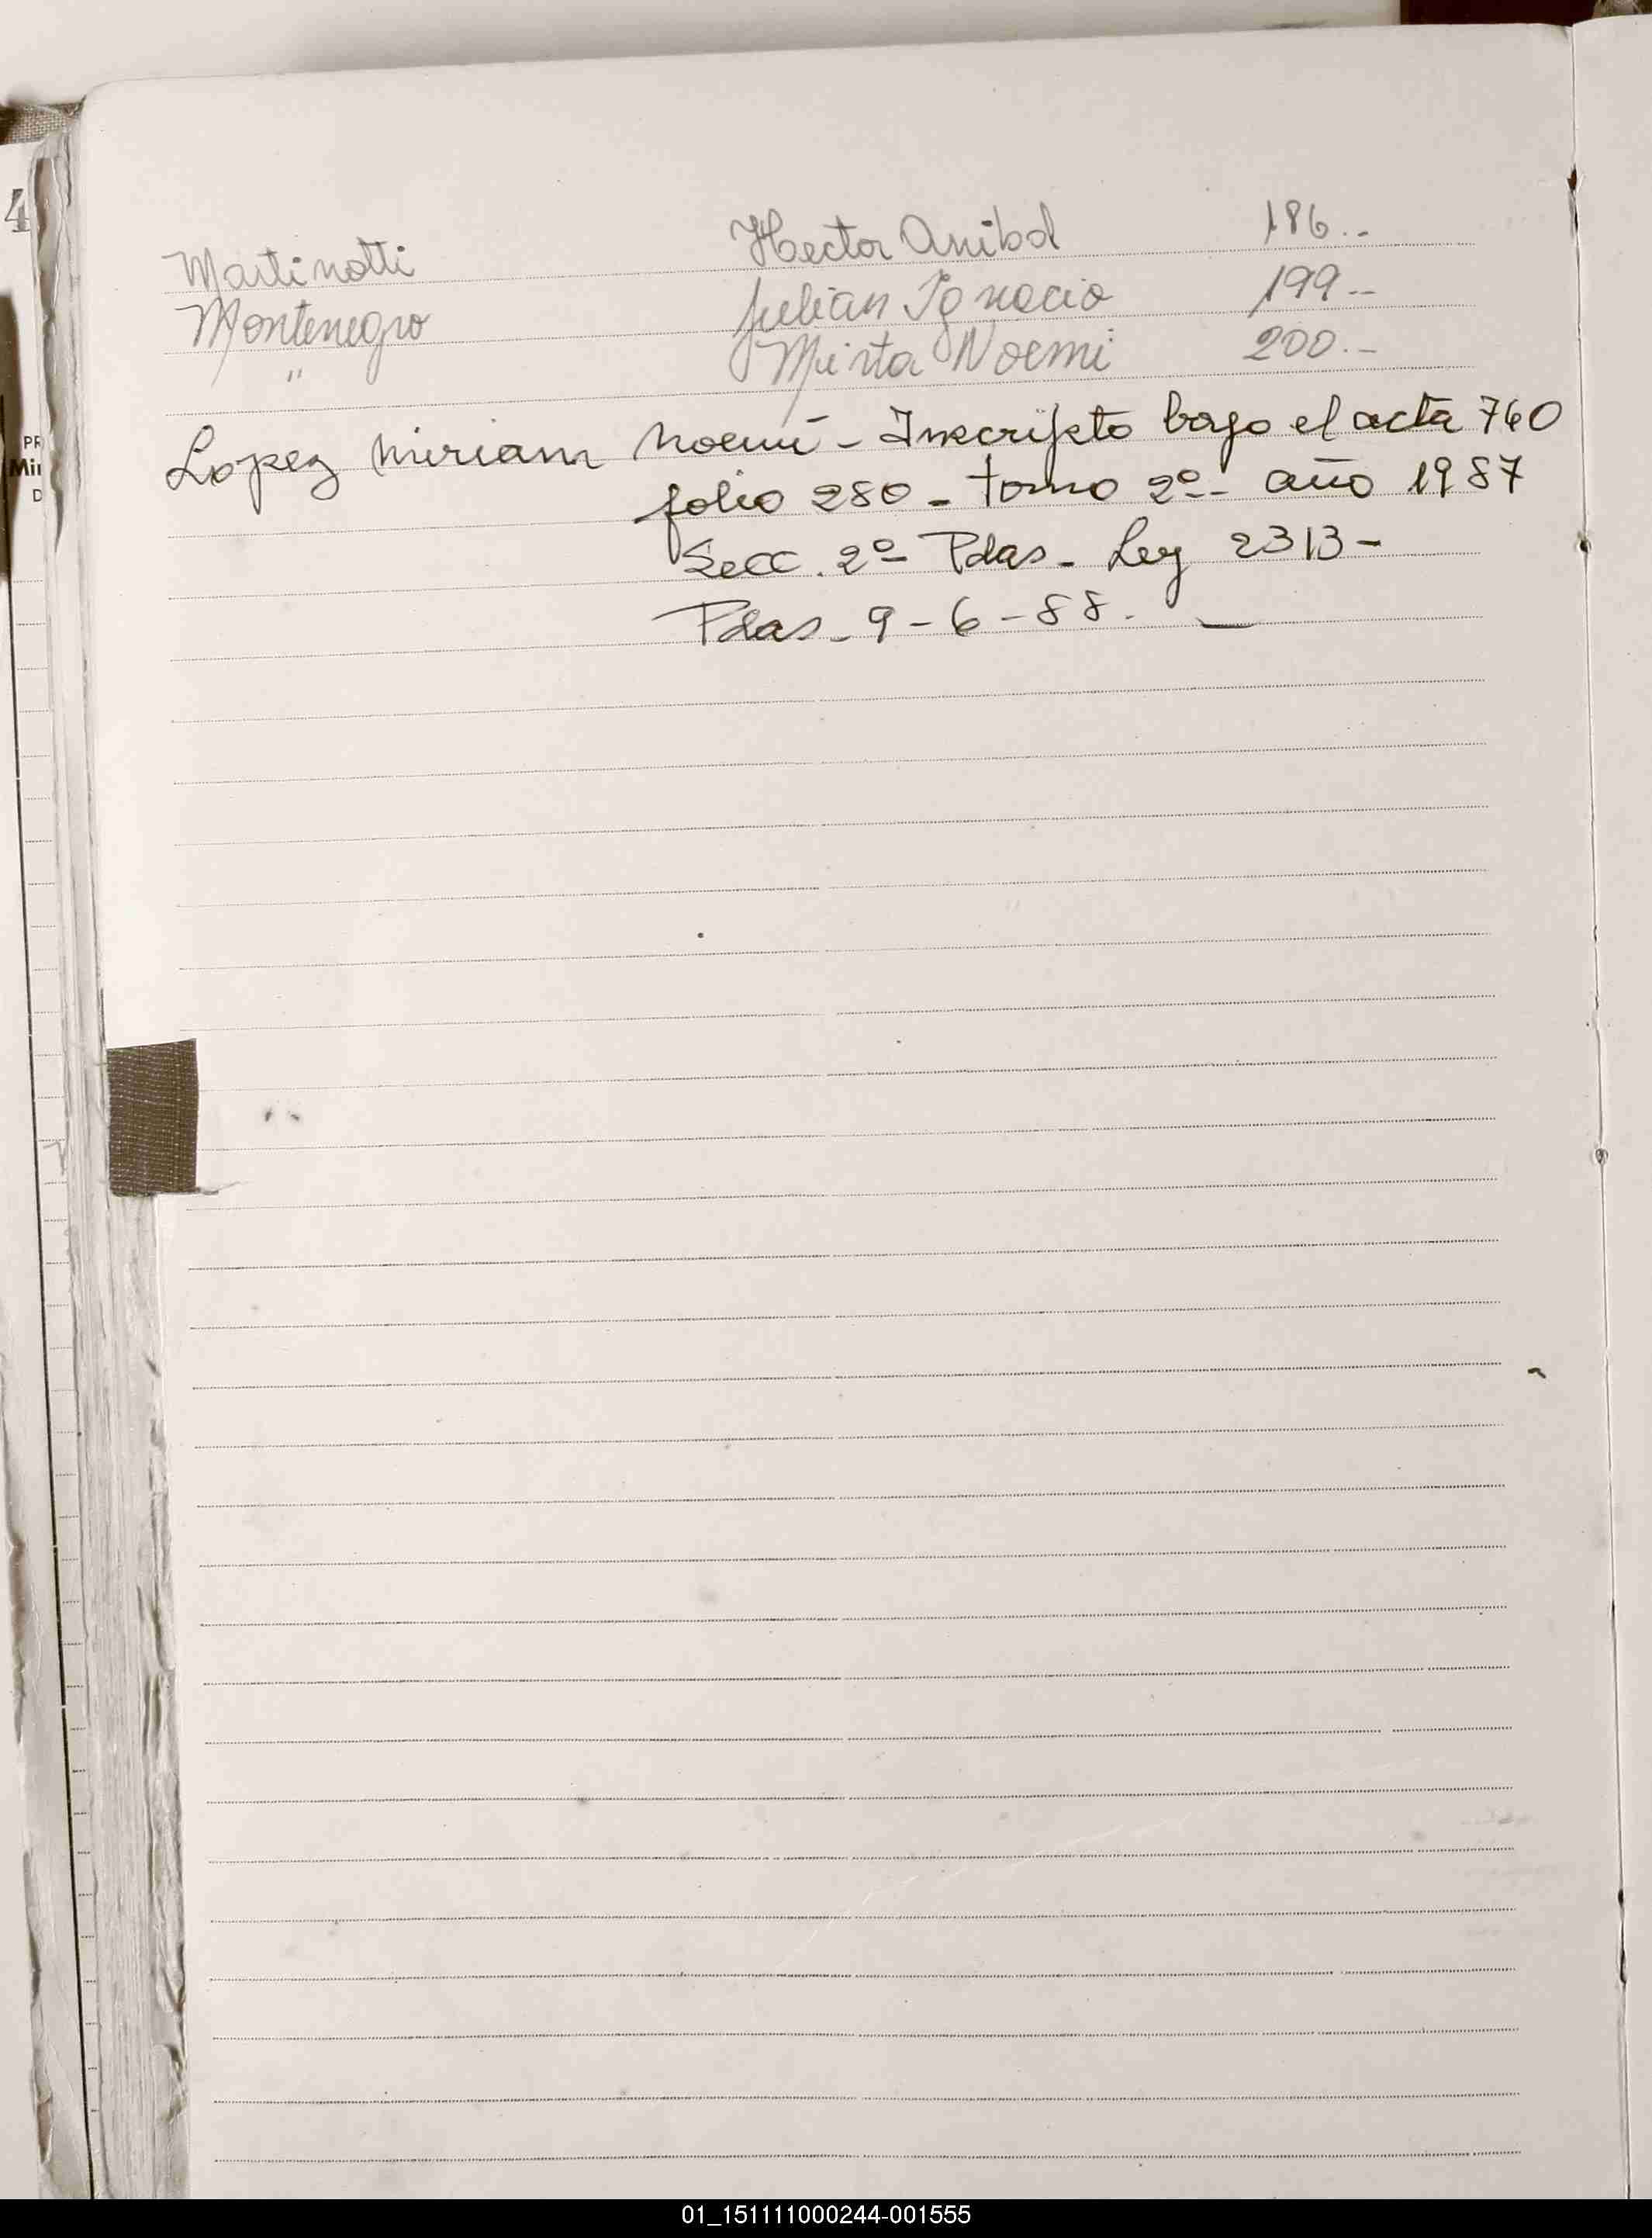 4
Martinotti Hector Anibal 186.-
Montenegro Julian Ignacio 199.-
" Mirta Noemi 200.-
Lopez Miriam Noemí - Inscripto bajo el acta 760
folio 280 - tomo 2º - año 1987
Secc. 2º Pdas - Ley 2313 -
Pdas - 9 - 6 - 88. -
01_151111000244-001555